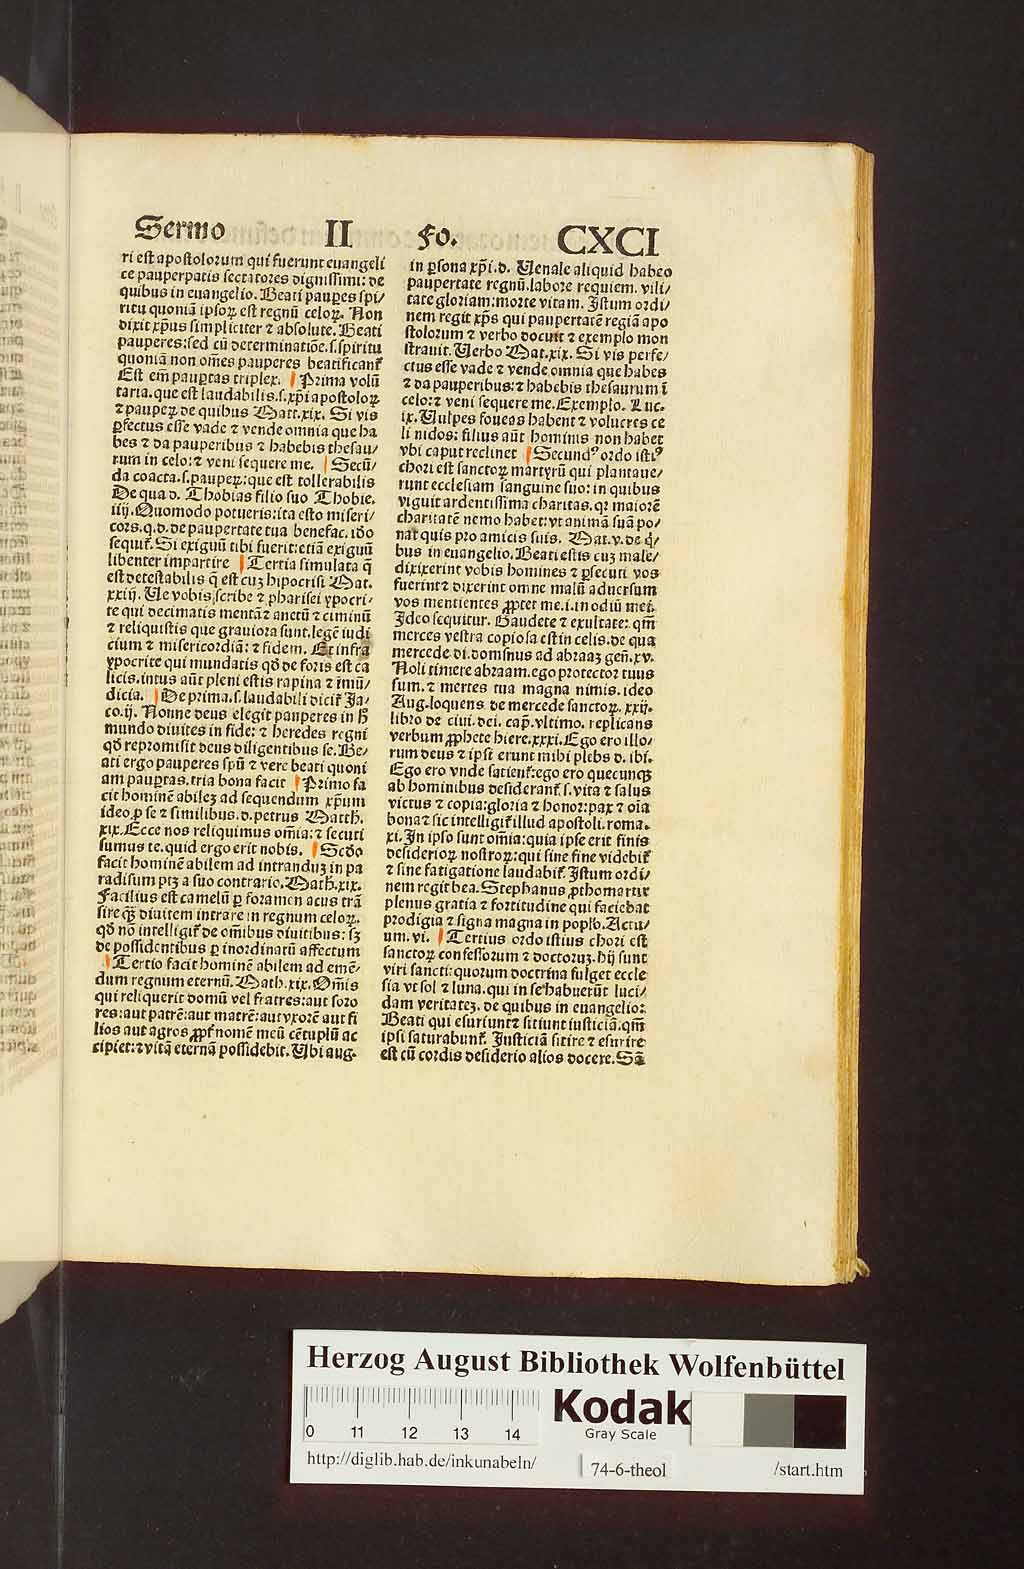 Sermo II Fo. CXCI
ri est apostolorum qui fuerunt euangeli
ce pauperpatis sectatores dignissimi: de
quibus in euangelio. Beati paupes spi/
ritu quoniā ipsoꝝ est regnū celoꝝ. Non
dixit xp̄us simpliciter ⁊ absolute. Beati
pauperes: sed cū determinatiōe. s. spiritu
quoniā non om̄es pauperes beatificant᷑
Est em̄ pauꝑtas triplex. Prima volū
taria. que est laudabilis. s. xp̄i apostoloꝝ
⁊ pauperꝝ de quibus Matt. xix. Si vis
ꝑfectus esse vade ⁊ vende omnia que ha
bes ⁊ da pauperibus ⁊ habebis thesau/
rum in celo: ⁊ veni sequere me. Secū/
da coacta. s. paupeꝝ: que est tollerabilis
De qua d. Thobias filio suo Thobie.
iiij. Quomodo potueris: ita esto miseri/
cors. q. d. de paupertate tua benefac. iđo
sequit᷑. Si exiguū tibi fuerit: etiā exiguū
libenter impartire Tertia simulata q̄
est detestabilis q̄ est cuȝ hipocrisi Mat.
xxiij. Ue vobis scribe ⁊ pharisei ypocri-
te qui decimatis mentā ⁊ anetū ⁊ ciminū
⁊ reliquistis que grauiora sunt. legē iudi
cium ⁊ misericordiā: ⁊ fidem. Et infra
ypocrite qui mundatis qđ de foris est ca
licis. intus aūt pleni estis rapina ⁊ īmū/
dicia. De prima. s. laudabili dicit᷑ Ja/
co. ij. Nonne deus elegit pauperes in ħ
mundo diuites in fide: ⁊ heredes regni
qđ repromisit deus diligentibus se. Be/
ati ergo pauperes spū ⁊ vere beati quoni
am pauꝑtas. tria bona facit Primo fa
cit hominē abileȝ ad sequendum xp̄um
ideo ꝑ se ⁊ similibus. d. petrus Matth.
xix. Ecce nos reliquimus om̄ia: ⁊ secuti
sumus te. quid ergo erit nobis. Scđo
facit hominē abilem ad intranduȝ in pa
radisum ptȝ a suo contrario. Math. xix.
Facilius est camelū ꝑ foramen acus trā
sire qȝ diuitem intrare in regnum celoꝝ.
qđ nō intelligit᷑ de om̄ibus diuitibus: sȝ
de possidentibus ꝑ inordinatū affectum
Tertio facit hominē abilem ad emē/
dum regnum eternū. Math. xix. Om̄is
qui reliquerit domū vel fratres: aut soro
res: aut patrē: aut matrē: aut vxorē aut fi
lios aut agros ꝓpt᷑ nomē meū cētuplū ac
cipiet: ⁊ vitā eternā possidebit. Ubi aug.
in ꝑsona xp̄i. d. Uenale aliquid habeo
paupertate regnū. labore requiem. vili/
tate gloriam: morte vitam. Istum ordi/
nem regit xp̄s qui paupertatē regiā apo
stolorum ⁊ verbo docuit ⁊ exemplo mon
strauit. Uerbo Mat. xix. Si vis perfe/
ctus esse vade ⁊ vende omnia que habes
⁊ da pauperibus: ⁊ habebis thesaurum ī
celo: ⁊ veni sequere me. Exemplo. Luc.
ix. Uulpes foueas habent ⁊ volucres ce
li nidos: filius aūt hominis non habet
vbi caput reclinet Secundꝰ ordo istiꝰ
chori est sanctoꝝ martyrū qui plantaue/
runt ecclesiam sanguine suo: in quibus
viguit ardentissima charitas. qꝛ maiorē
charitatē nemo habet: vt animā suā po/
nat quis pro amicis suis. Mat. v. de q̇/
bus in euangelio. Beati estis cuȝ male/
dixixerint vobis homines ⁊ ꝑsecuti vos
fuerint ⁊ dixerint omne malū aduersum
vos mentientes ꝓpter me. i. in odiū mei.
Ideo sequitur. Gaudete ⁊ exultate: qm̄
merces vestra copiosa est in celis. de qua
mercede di. dominus ad abraaȝ gen̄. xv.
Noli timere abraam. ego protector tuus
sum. ⁊ merces tua magna nimis. ideo
Aug. loquens de mercede sanctoꝝ. xxij.
libro de ciui. dei. cap̄. vltimo. replicans
verbum ꝓphete hiere. xxxi. Ego ero illo/
rum deus ⁊ ipsi erunt mihi plebs d. ibi.
Ego ero vnde satient᷑: ego ero quecunqȝ
ab hominibus desiderant᷑. s. vita ⁊ salus
victus ⁊ copia: gloria ⁊ honor: pax ⁊ oīa
bona ⁊ sic intelligit᷑ illud apostoli. roma.
xi. In ipso sunt om̄ia: quia ipse erit finis
desiderioꝝ nostroꝝ: qui sine fine videbit᷑
⁊ sine fatigatione laudabit᷑. Istum ordi/
nem regit bea. Stephanus ꝓthomartir
plenus gratia ⁊ fortitudine qui faciebat
prodigia ⁊ signa magna in poplo. Actu/
um. vi. Tertius ordo istius chori est
sanctoꝝ confessorum ⁊ doctoruȝ. hij sunt
viri sancti: quorum doctrina fulget eccle
sia vt sol ⁊ luna. qui in se habuerūt luci/
dam veritateȝ. de quibus in euangelio:
Beati qui esuriunt ⁊ sitiunt iusticiā. qm̄
ipsi saturabunt᷑. Iusticiā sitire ⁊ esurire
est cū cordis desiderio alios docere. Sā
Herzog August Bibliothek Wolfenbüttel
0 11 12 13 14
Kodak
Gray Scale
http://diglib.hab.de/inkunabeln/ 74-6-theol /start.htm